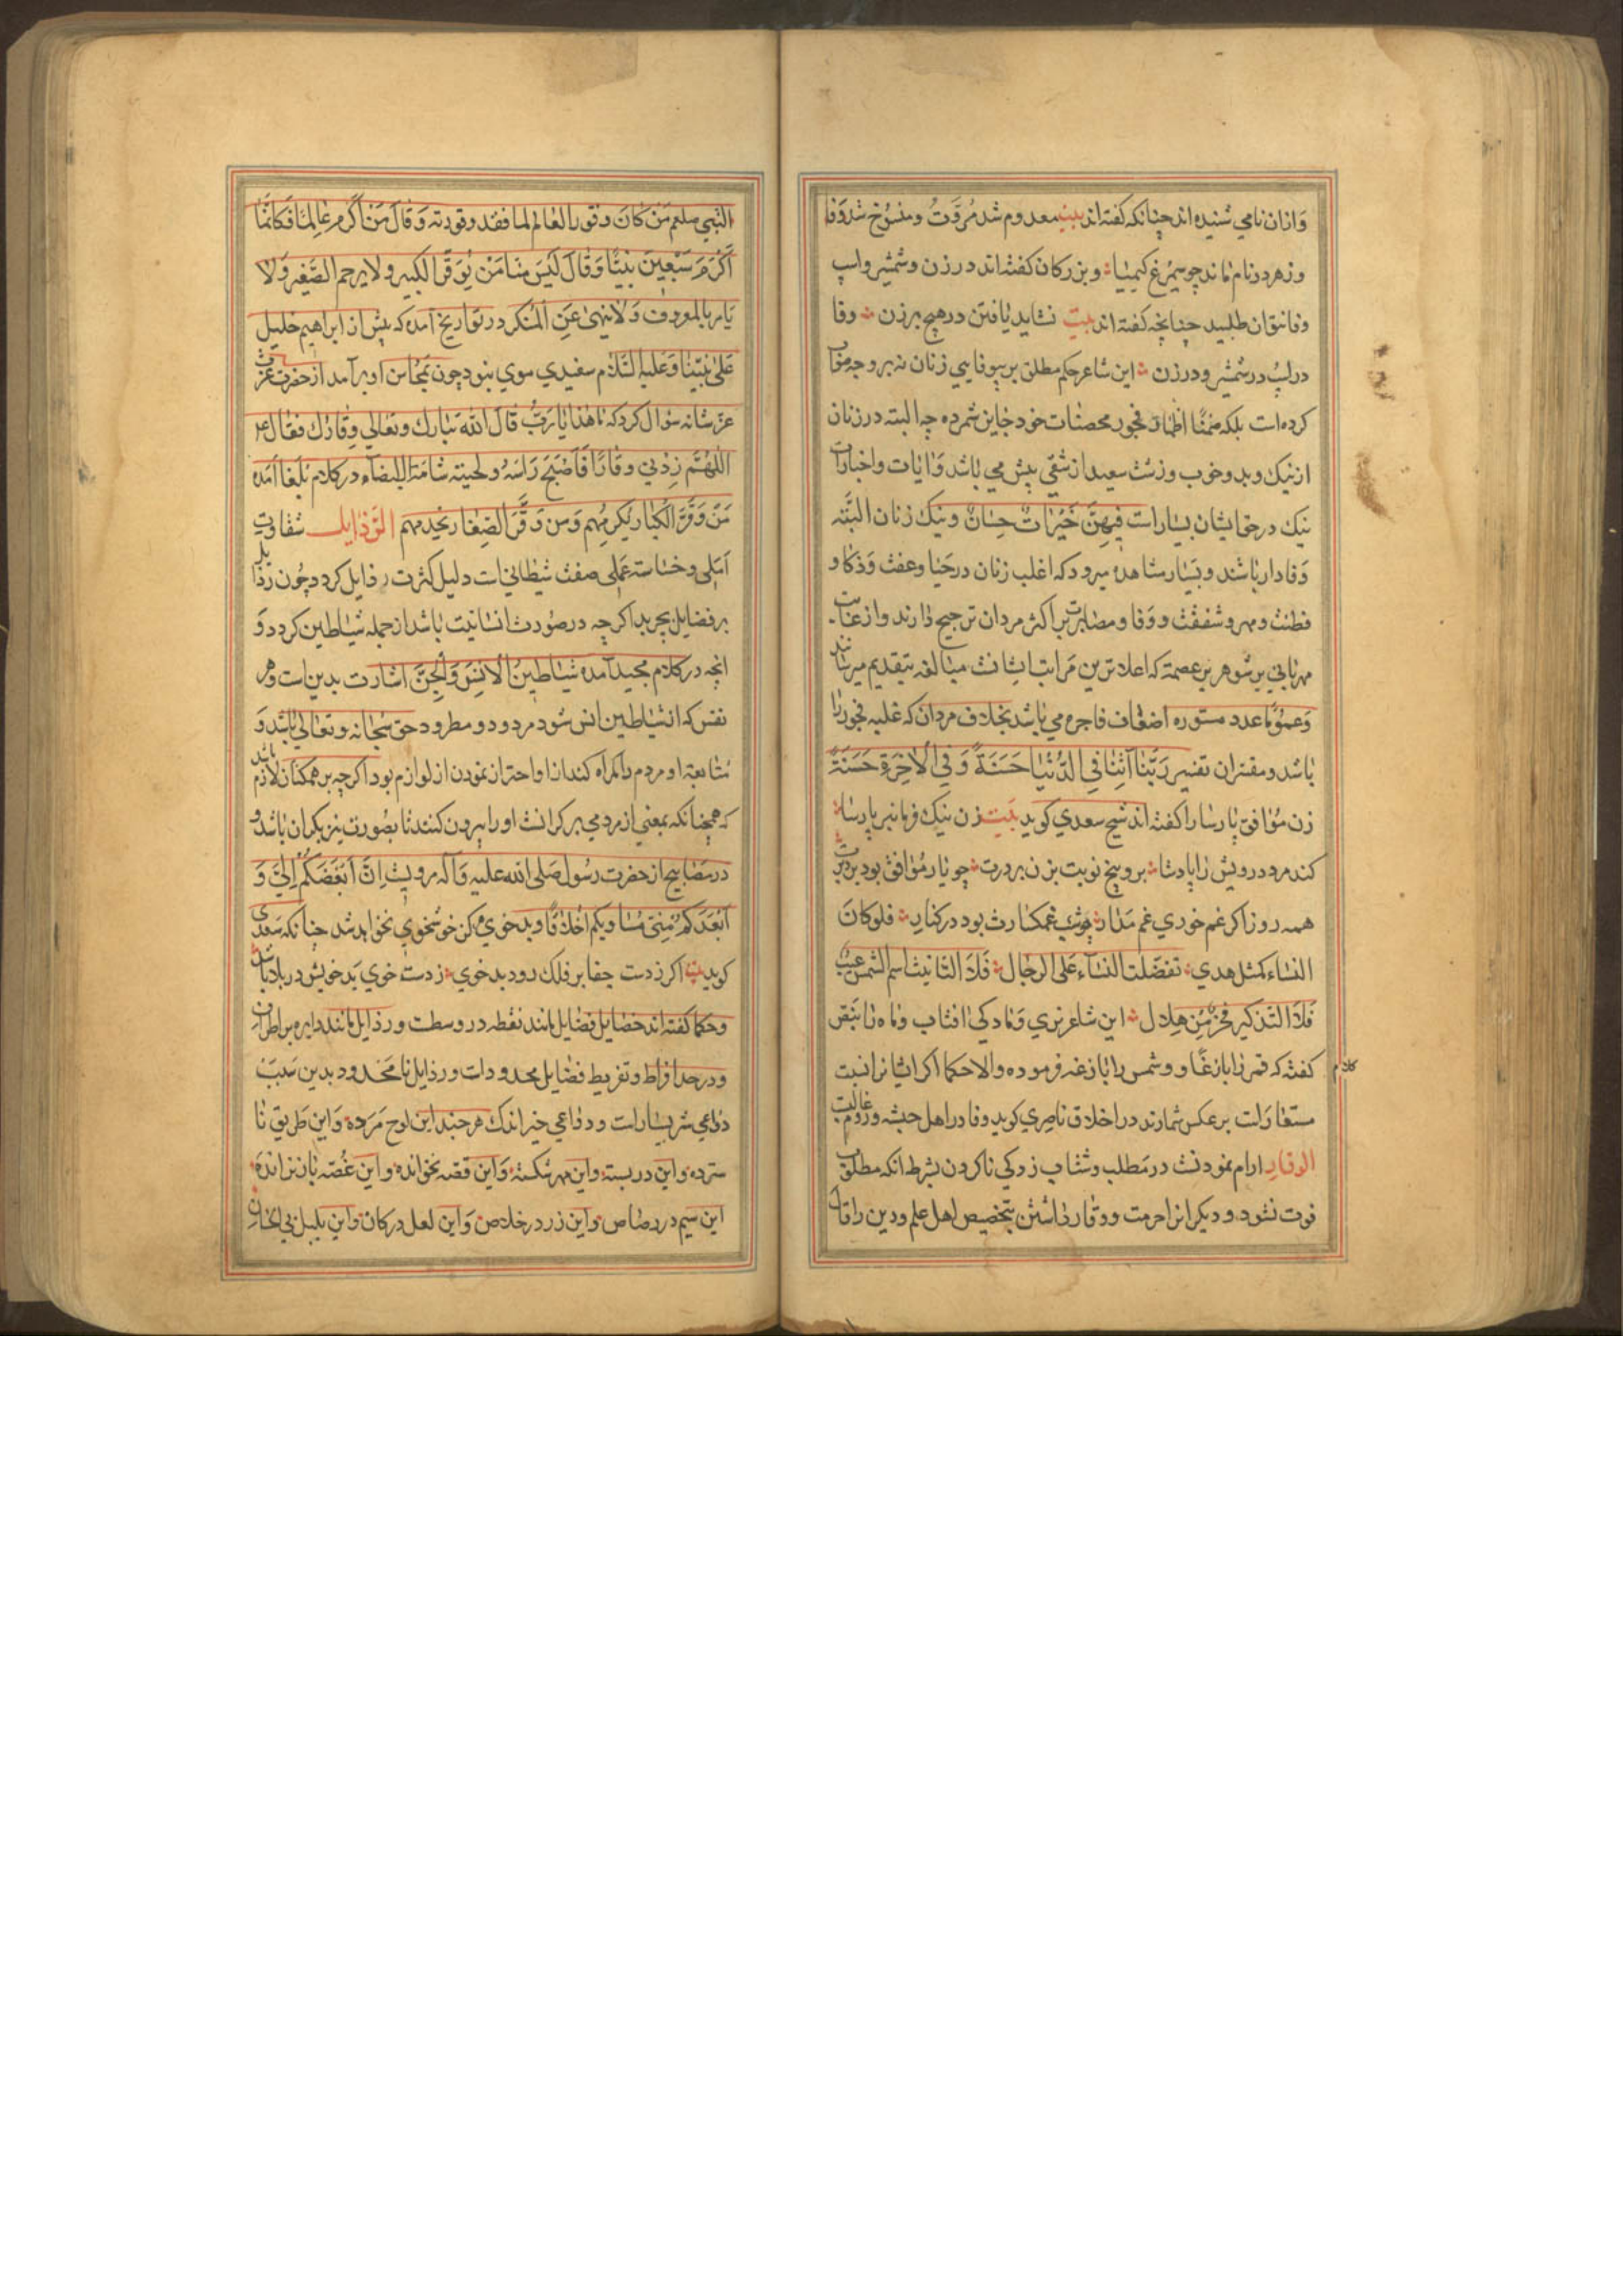 وازان نامي شنیده اند چنانکه گفته اند بیت معدوم شد مُرُوّت و منسُوخ شد وَفا
وز هر دو نام ماند چو سیمرغ کیمیا و بزرکان کفته اند در زن و شمشیر واسپ
وفا نتوان طلبید چنانچه کفته اند بیت نشاید یافتن در هیچ برزن وفا
در اسپ در شمشیر و در زن این شاعر حکم مطلق بر بیوفایي زنان نه بر وجه
کرده است بلکه ضمنًا اظهار فجور محصنات خود خاین شمرده چه البته در زنان
از نیک و بد و خوب و زشت سعید از شقي بیش مي باشد وَ ایات و اخبارات
نیک در حق ایشان بسیار است فِیهِنَّ خَیْرَاتٌ حِسَانٌ و نیک زنان البَتَّه
وَفادار باشند و بَسیار مشاهده میرود که اغلب زنان در حَیا و عفت وَ ذکا و
فطنت و مهر و شفقت و وَفا و مصابرت بر اکثر مردان ترجیح دارند و از غایت
مهرباني بر شوهر بر عصمت که اعلا ترین مَراتب ایشانست مبالغه بتقدیم میرسانند
وَ عمُومًا عدد مستوره اضعاف فاجره مي باشد بخلاف مردان که غلبه فجور را
باشد و مفسران تفسیر رَبَّنَا آتِنَا فِي الدُّنْیَا حَسَنَةً وَ فِي الْاٰخِرَةِ حَسَنَةً
زن مُوافق پارسا را کفته اند شیخ سعدي کوید بَیت زن نیک فرمانبر پارسا
کند مرد درویش را پادشا برو پنج نوبت بزن بر درت چو یار مُوافق بود در برت
همه روز اکر غم خوري غم مَدار چو شب غمکسارت بود در کنار فلو کانَ
النساء کمثل هدي تفضّلت النسَآء عَلَی الرجال فَلَا التَانیث اسم الشمس عیب
فَلَا التَذکیر فخرٌ مِن هِلال این شاعر
کفته که قمر را بازغًا و شمس را بازغه فرموده و الا حکما اکر ایشانرا نسبت
کلام
برعکس شمارند در اخلاق ناصِري کوید وفا در اهل حبشه و روم غالبست
الوقار ارام نمودنست در مَطلب و شتاب زدکي ناکردن بشرط انکه مطلوب
فوت نشود و دیکر انرا حرمت و وقار داشتن بتخصیص اهل علم و دین را قال
النبي صلعم مَن کانَ وقور العَالم لما فقد وقورته وَ قالَ مَنْ اَکْرَم عَالِمًا فَکَانَّمَا
اَکْرَمَ سَبْعِینَ نَبِیًّا وَ قالَ لَیْسَ مِنّا مَنْ یُوَقّر الکبیر و لا یرحم الصَّغیر وَ لا
یَامر بالمعروف وَ لا ینهیٰ عَنِ المُنکر در تواریخ آمده که پیش از ابراهیم خلیل
عَلیٰ نَبیّنَا وَ عَلیه السَّلام سفیدي موي نبود چون محاسن او بر آمد از حضرت عزت
عزّ شانه سؤال کرد که مَا هٰذا یَا رَبُّ قالَ الله تَبَارك وتعَالي وِقَارك فقال ع
اللّٰهُمَّ زِدْني وِقارًا فَاَصْبَحَ رَاسَهُ و لحیته شامَة البیضآء در کلام بُلغا آمده
مَنْ وَقَّرَ الکُبَار یُکرمهم وَ مَن وَقَّرَ الصِّغار یخدمهم الرَّذایل شقاوت
اَصلی و خسَاست عَملي صفت شیطانیات دلیل کثرت رذایل کردد چون رذایل
بر فضایل بچربد اکر چه در صُورت انسانیت باشد از جمله شیاطین کردد وَ
انچه در کلام مجید آمده شیَاطینَ الْاِنْسِ وَ الْجِنِّ اشارت بدین است و هر
نفس که از شیاطین انس شود مردود و مطرود حق سبحانه و تعالي باشد وَ
متابعت او مردم را کمراه کند ازاو احتراز نمودن از لوازم بود اکر چه بر همکنان لازم باشد
که همچنانکه بمعني از مردمي بر کرانست او را بیرون کنند تا بصُورت نیز بکران باشد و
در مصابیح از حضرت رسُول صَلی الله علیه وَ آله مرویست اِنَّ اَبْغَضَکُمْ اِلَيَّ وَ
اَبْعَدَکُمْ مِنّي مسَاویکم اَخْلاقًا و بدخوي ممکن خوشخوي نخواهد شد چنانکه سَعدي
کوید بیت اکر ز دست جفا بر فلك رود بدخوي ز دست خوي بَد خویش در بلا باشد
و حکما کفته اند خصایل فضایل مانند نقطه در وسطست و رذایل مانند دایره بر اطراف
و در حد افراط و تفریط فضایل محدودات و رذایل نامَحْدود بدین سَبَبْ
دَواعي شر بسیار است و دواعي خیر اندک هر چند این لوح مَرده وَ این طریق نا
سترده و این در بسته و این مهر شکسته وَ این قصه نخوانده و این غُصّه باز نرانده
این سیم در رصاص و این زر در خلاص وَ این لعل در کان و این بلبل بي الحان